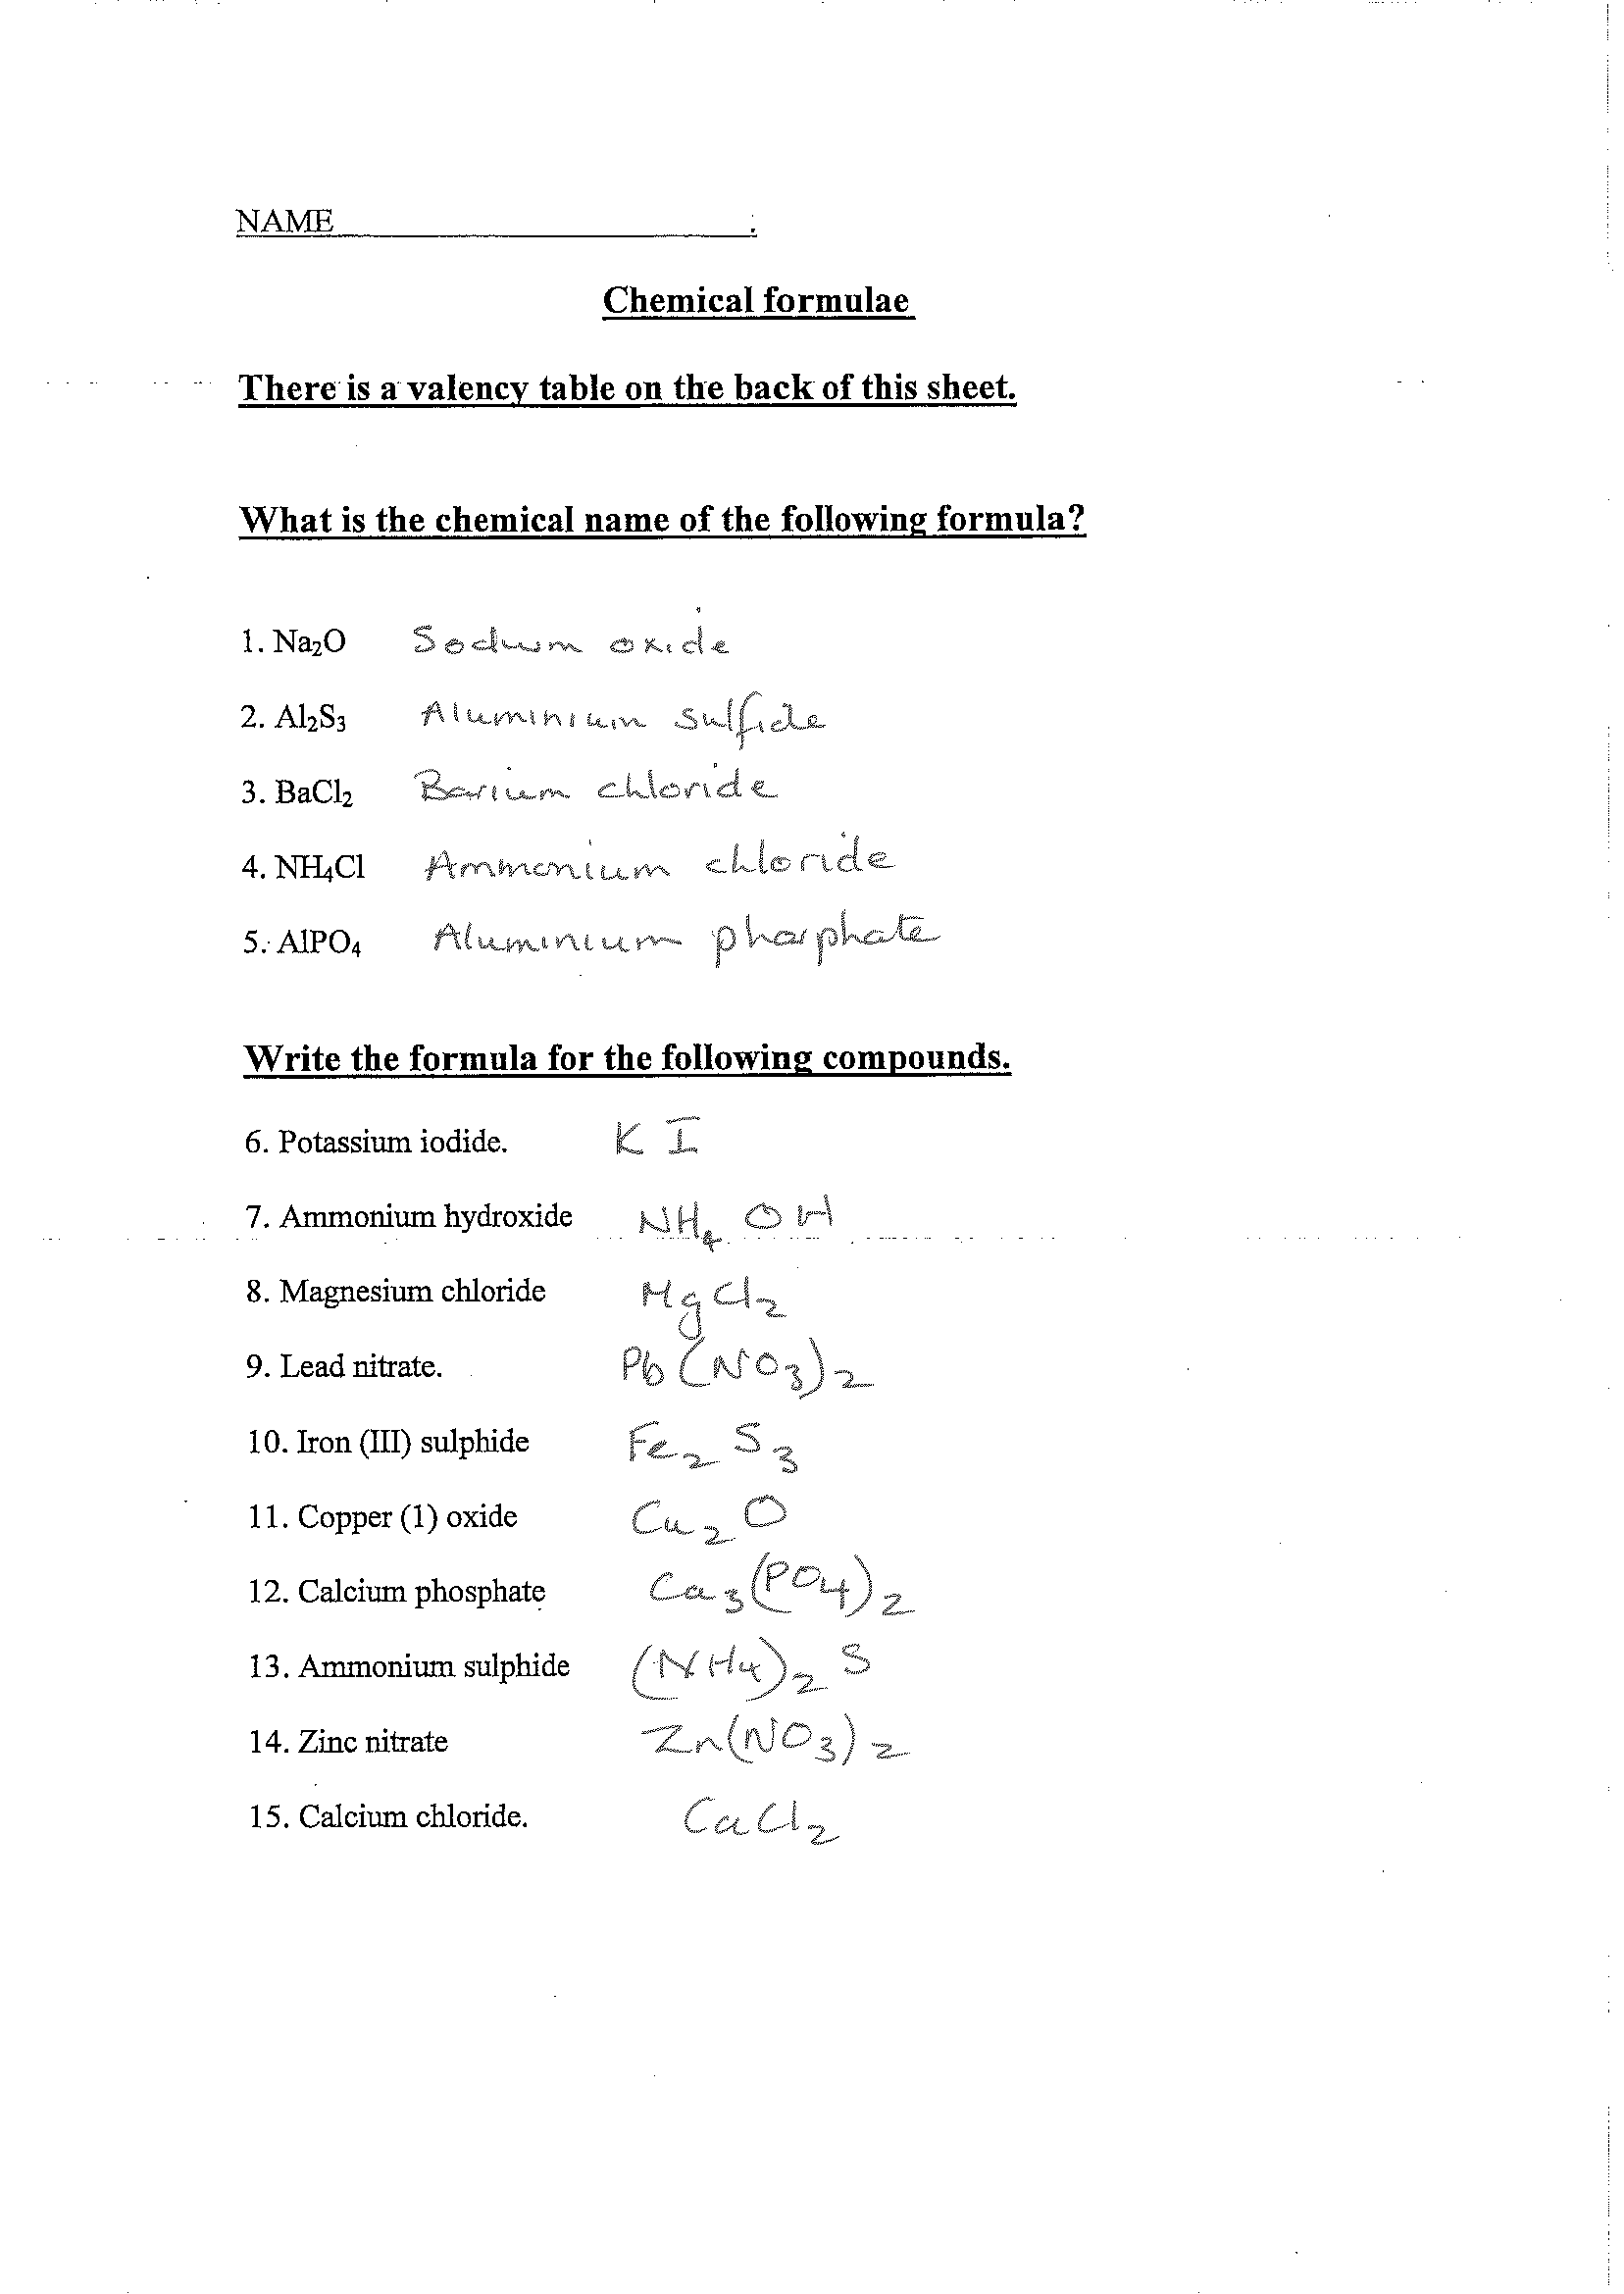 NAME
Chemical formulae
There is a valency table on the back of this sheet.
What is the chemical name of the following formula?
1. Na₂O Sodium oxide
2. Al₂S₃ Aluminium sulfide
3. BaCl₂ Barium chloride
4. NH₄Cl Ammonium chloride
5. AlPO₄ Aluminium phosphate
Write the formula for the following compounds.
6. Potassium iodide. KI
7. Ammonium hydroxide NH₄OH
8. Magnesium chloride MgCl₂
9. Lead nitrate. Pb(NO₃)₂
10. Iron (III) sulphide Fe₂S₃
11. Copper (1) oxide Cu₂O
12. Calcium phosphate Ca₃(PO₄)₂
13. Ammonium sulphide (NH₄)₂S
14. Zinc nitrate Zn(NO₃)₂
15. Calcium chloride. CaCl₂